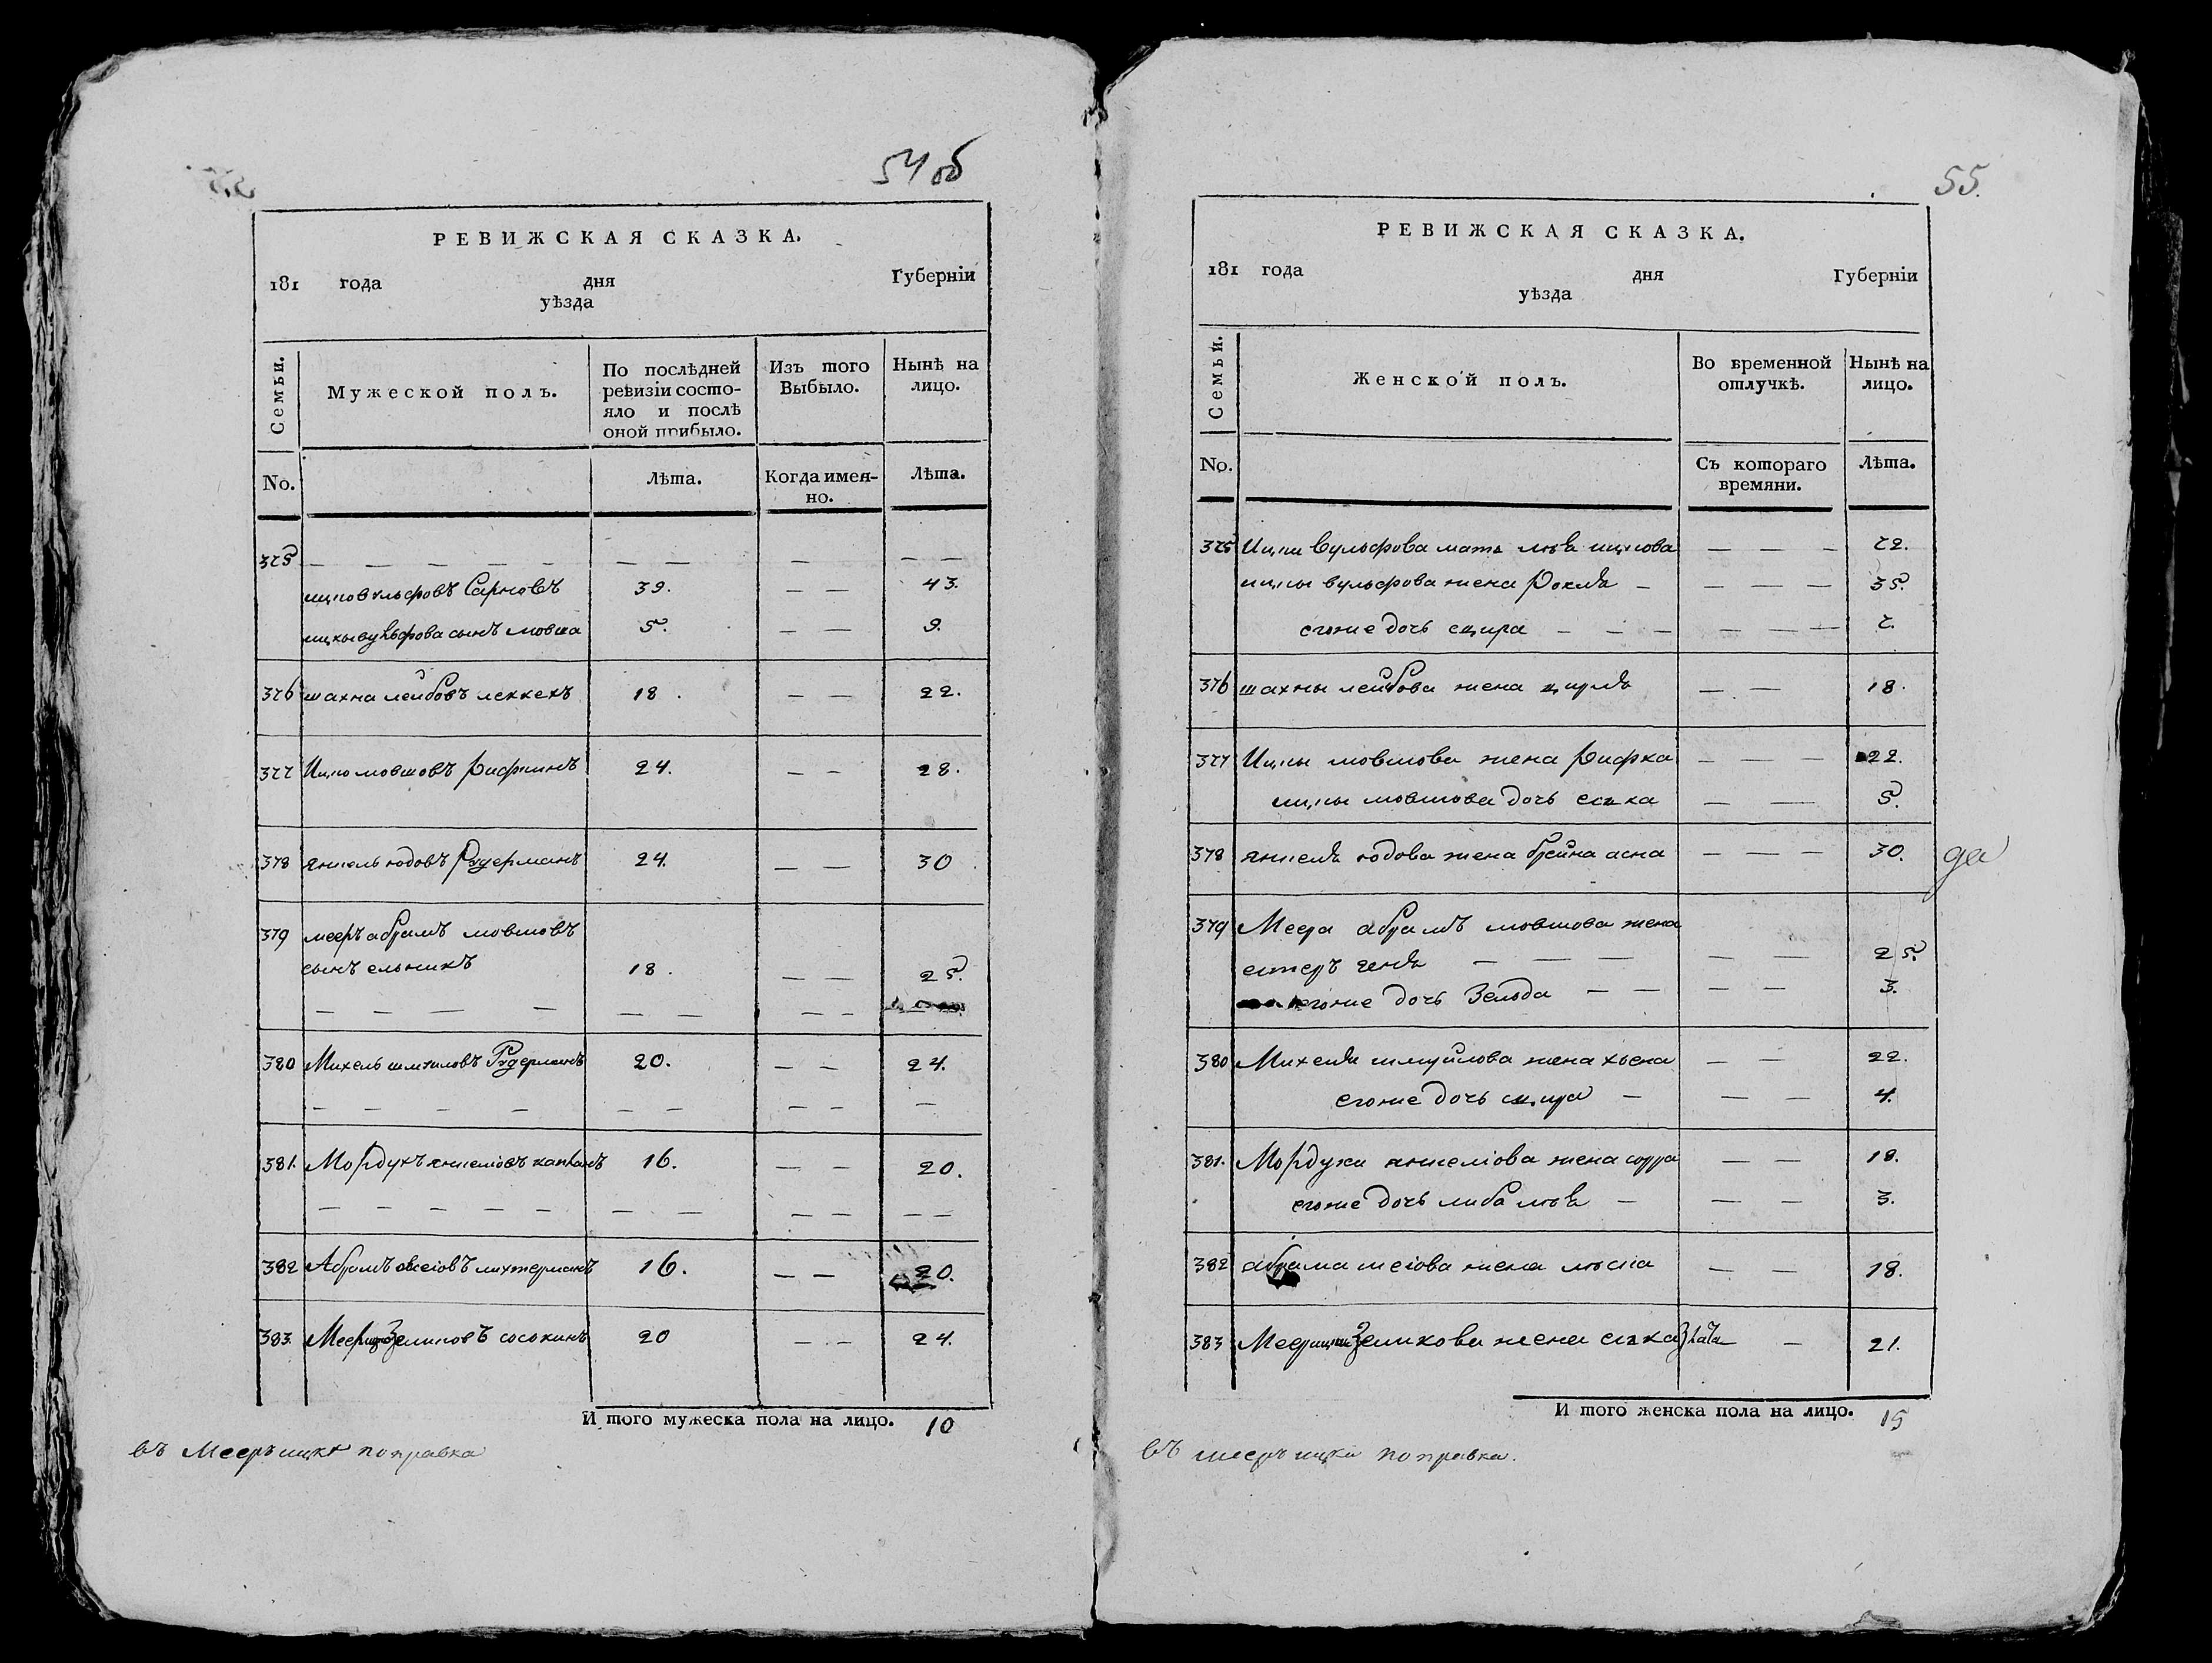 54 об
РЕВИЖСКАЯ СКАЗКА.
181 года дня Губерніи
уѣзда
Семьи. Мужеской полъ. По послѣдней ревизіи состояло и послѣ оной прибыло. Изъ того Выбыло. Нынѣ на лицо.
No. Лѣта. Когда имен-но. Лѣта.
375 — — — — — — — — — — —
ицко вульфовъ 39. — — 43.
ицкы вульфова сынъ мовша 5. — — 9.
376 шахна лейбовъ 18. — — 22.
377 Ицко мовшовъ Рифкинъ 24. — — 28.
378 янкель юдовъ Рудерманъ 24. — — 30
379 мееръ абрамъ мовшовъ
сынъ ельникъ 18. — — 25.
— — — — — — — —
380 Михель шмуиловъ Рудерманъ 20. — — 24.
— — — — — — — — —
381. Мордухъ капланъ 16. — — 20.
— — — — — — — — — — —
382 Абрамъ лихтерманъ 16. — — 20.
383. Мееръ ицко Зеликовъ сосокинъ 20 — — 24.
И того мужеска пола на лицо. 10
въ Мееръ ицка поправка
55.
РЕВИЖСКАЯ СКАЗКА.
181 года дня Губерніи
уѣзда
Семьи. Женской полъ. Во временной отлучкѣ. Нынѣ на лицо.
No. Съ котораго времяни. Лѣта.
375 Ицки вульфова мать ицкова — — — 72.
ицкы вульфова жена Рокля — — — — 35.
егоже дочь — — — — — — 7.
376 шахны лейбова жена цирля — — 18.
377 Ицкы мовшова жена Рифка — — — 22.
ицкы мовшова дочь — — 5.
378 янкеля юдова жена брейна асна — — — 30. да
379 Меера абрамъ мовшова жена
естеръ геня — — — — — 25.
егоже дочь Зельда — — — — 3.
380 Михеля шмуйлова жена хьена — — 22.
егоже дочь — — — 4.
381. Мордуха янкеліова жена сорра — — 18.
егоже дочь либа — — — 3.
382 абрама жена — — 18.
383 Мееръ ицки Зеликова жена злата — 21.
И того женска пола на лицо. 15
въ мееръ ицки поправка.